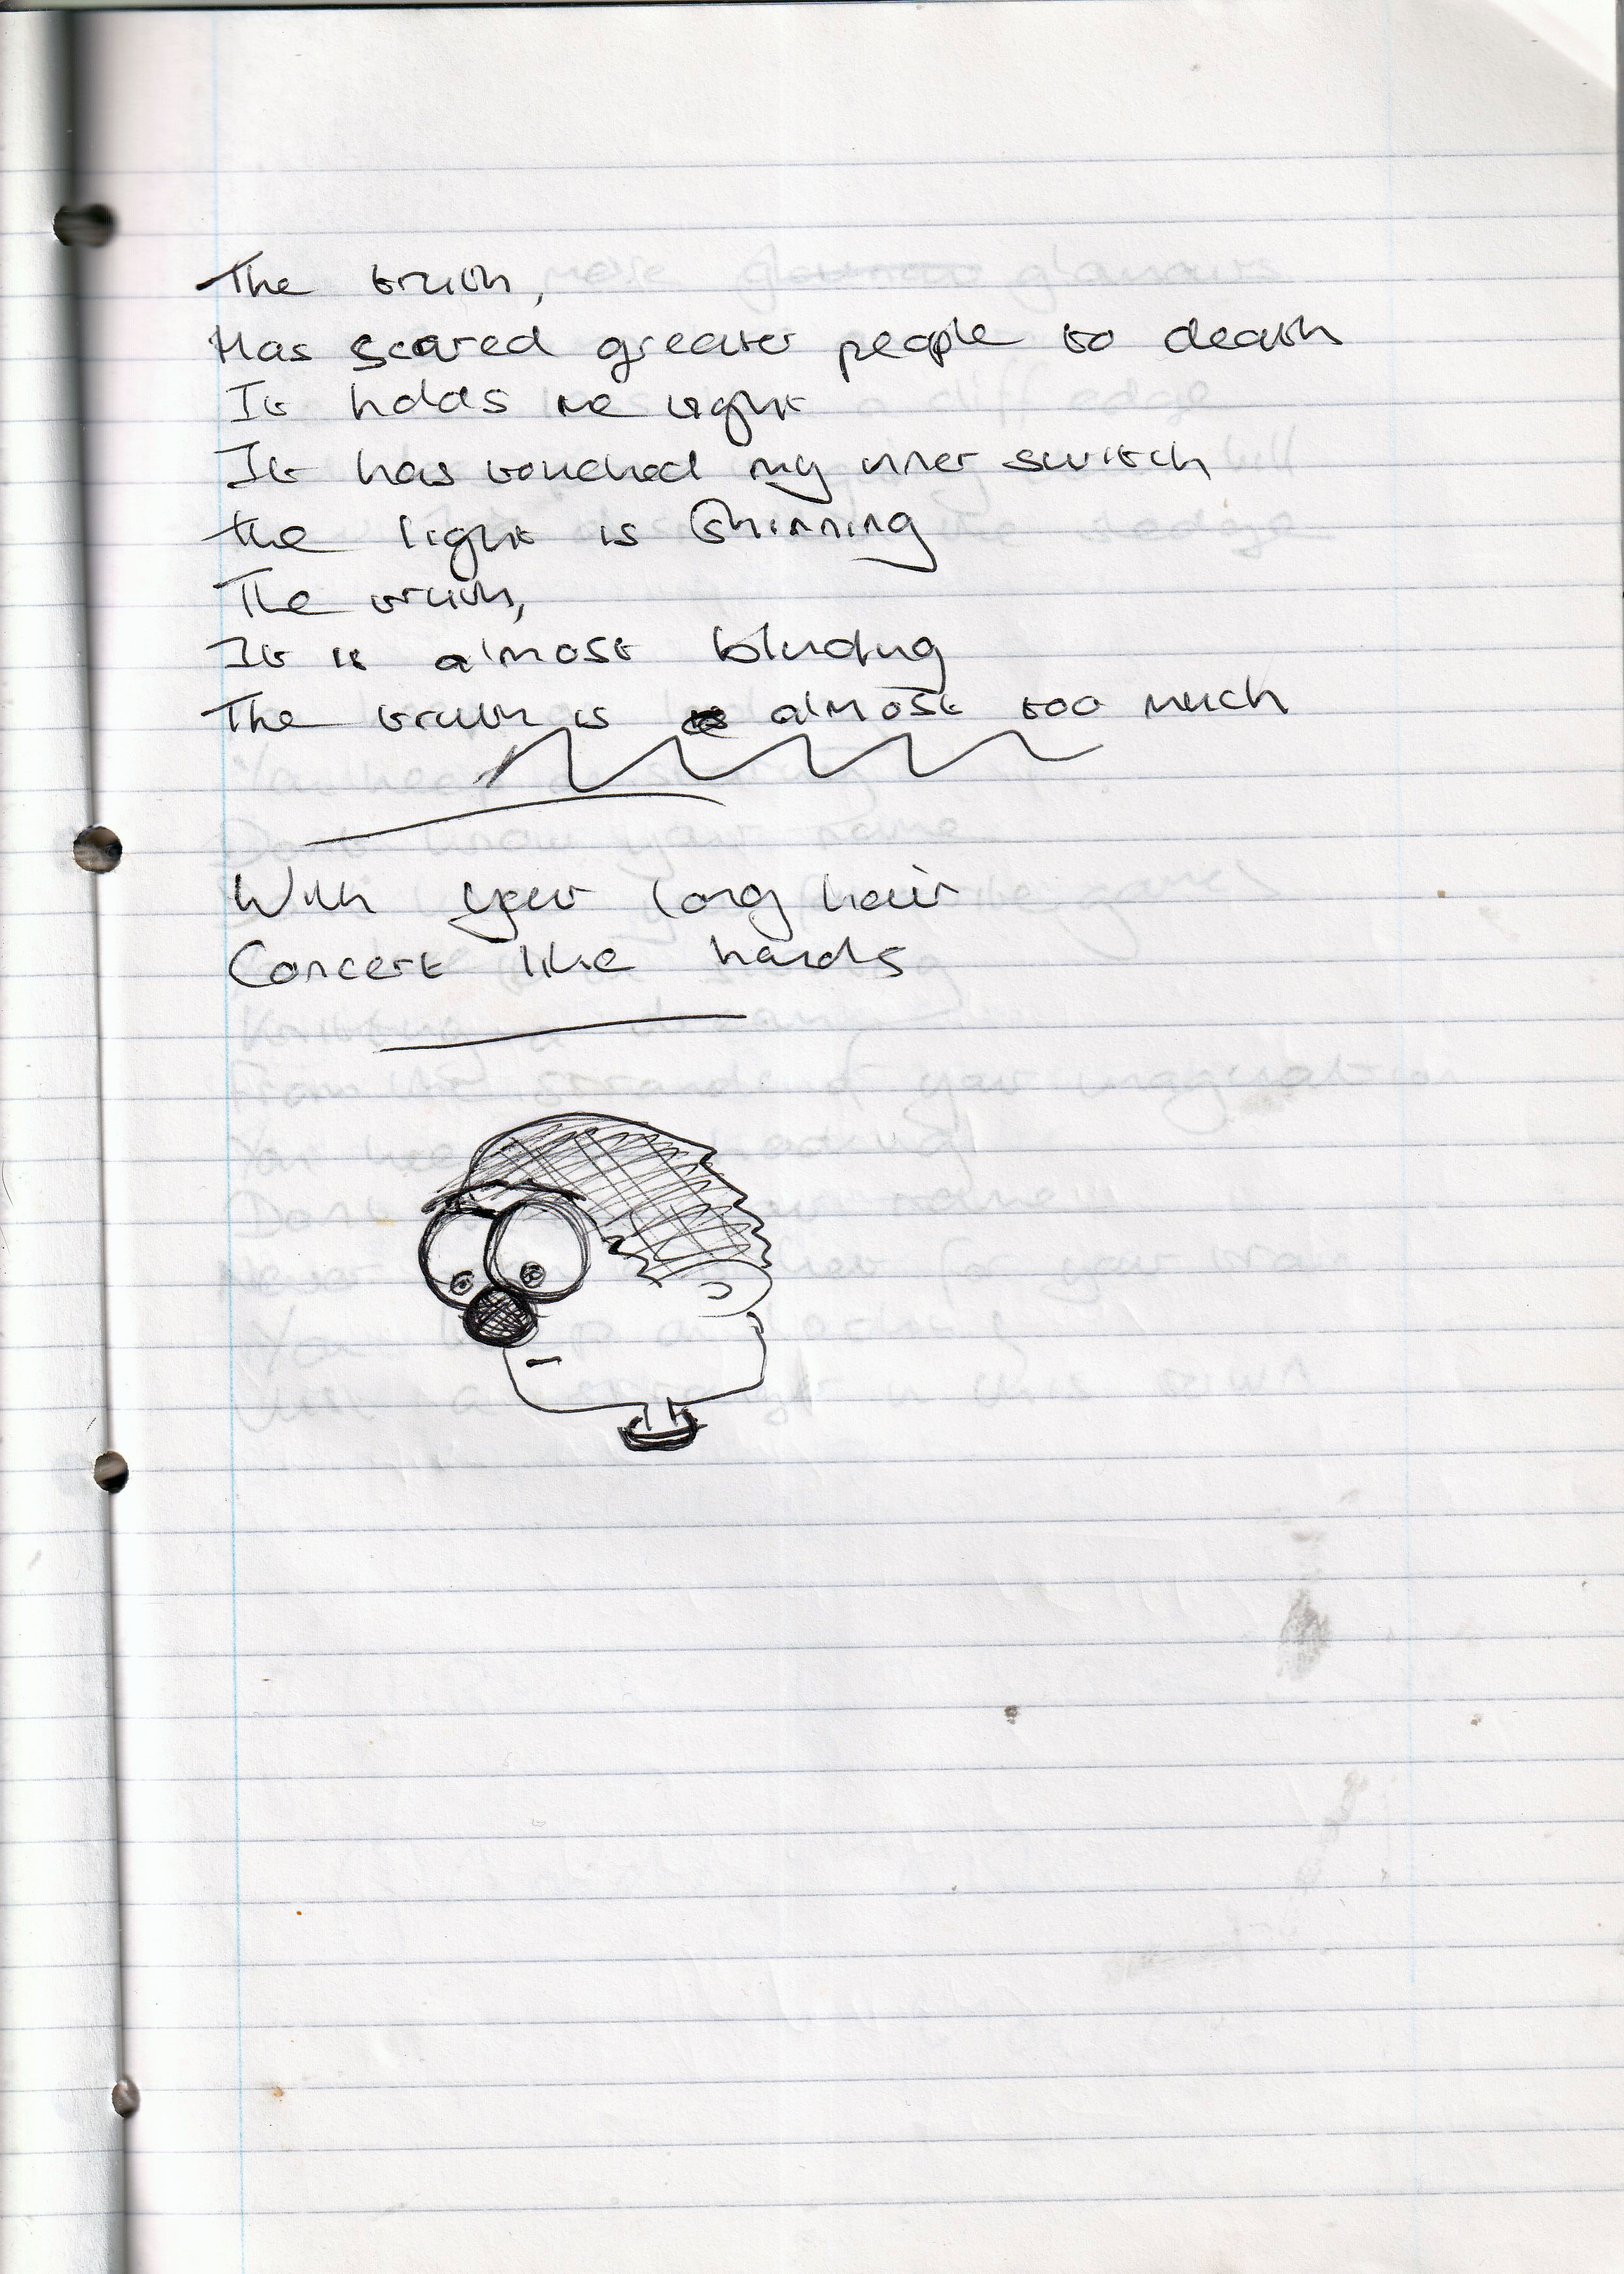 The truth,
Has scared greater people to death
It holds me tight
It has touched my inner switch
the light is Shinning
The truth,
It is almost blinding
The truth is almost too much
With your long hair
Concert like hands